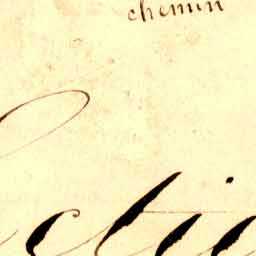 chemin
ectio